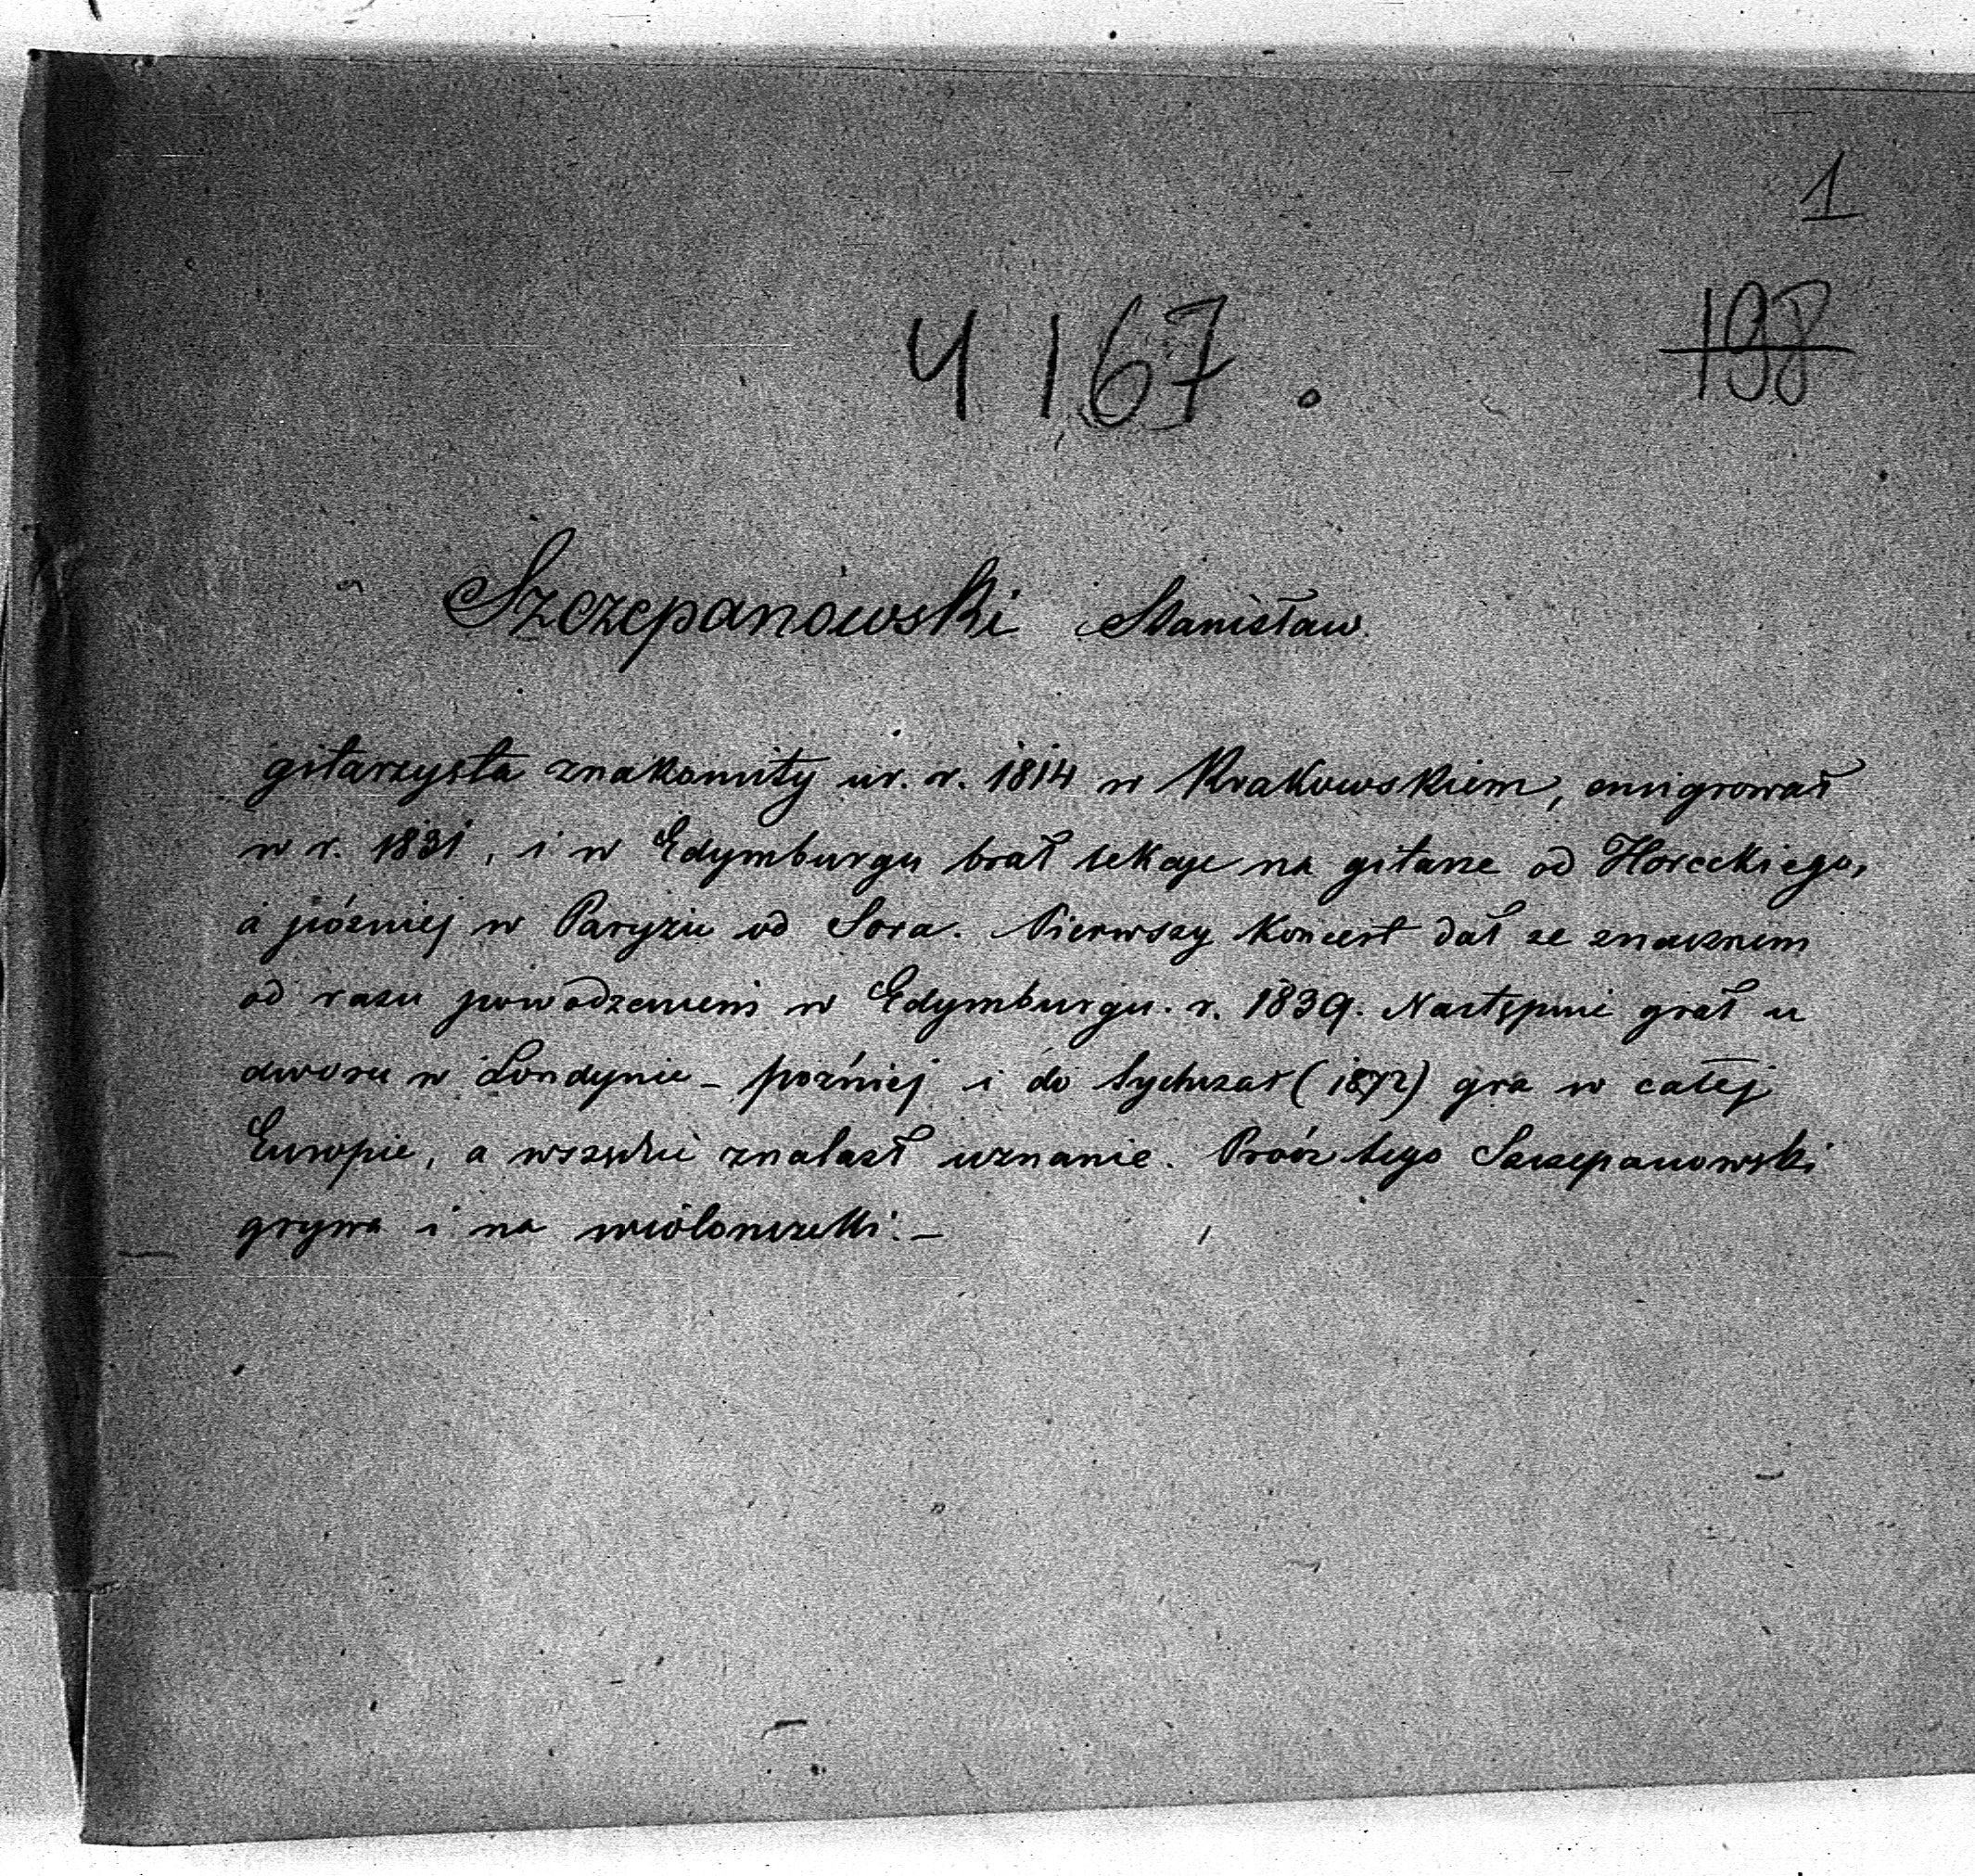 1
4167.
198
Szczepanowski Stanisław
gitarzysta znakomity ur. r. 1814 w Krakowskiem, emigrował
w r. 1831, i w Edymburgu brał lekcje na gitarze od Horeckiego,
a później w Paryżu od Sora. Pierwszy koncert dał ze znacznem
od razu powodzeniem w Edymburgu. r. 1839. Następnie grał u
dworu w Londynie – poźniej i do tychczas (1872) gra w całej
Europie, a wszędzie znalazł uznanie. Prócz tego Szczepanowski
grywa i na wiolonczelli. –